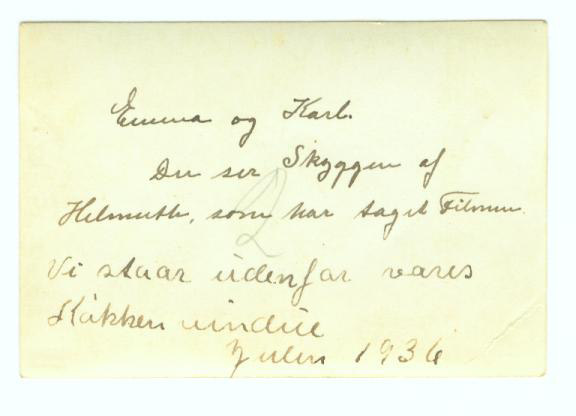 Emma og Karl.
Du ser Skyggen af
Helmuth, som har taget Filmen.
2
Vi staar üdenfar vares
Kåkken vindüe
Julen 1936